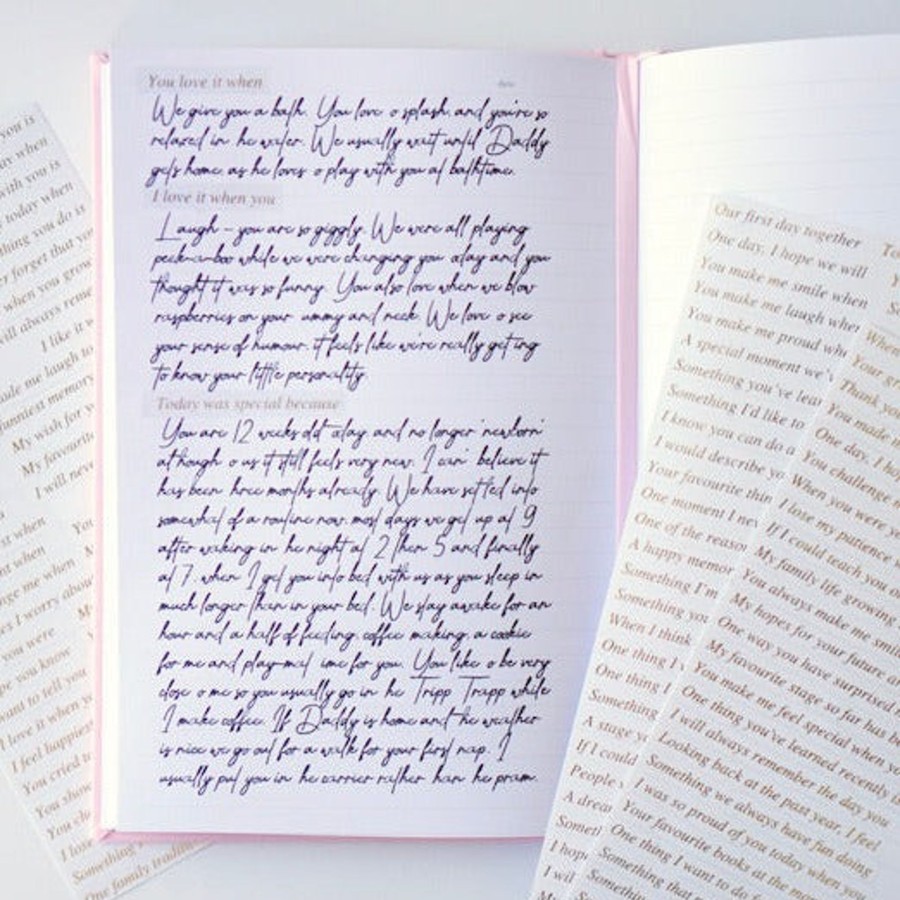 you is
day when
with you is
today when
thing you do is
er forget that you
when you grow
will always reme
I like it w
ade me laugh to
unniest memory
My wish for y
My favourite
I will neve
st when
nt when
ge me when
es I worry abou
you were
pe you know
want to tell you
I love it when y
I feel happiest
You cried
You show
You ch
I love
Something
One family traditi
You love it when
We give you a bath. You love o splash and you're so
relaxed in he water. We usually wait until Daddy
gets home, as he loves o play with you at bathtime.
I love it when you
Laugh - you are so giggly. We were all playing
peek-a-boo while we were changing you oday and you
thought it was so funny. You also love when we blow
raspberries on your ummy and neck. We love o see
your sense of humour, it feels like we're really getting
to know your little personality.
Today was special because
You are 12 weeks old oday and no longer 'newborn'
although o us it still feels very new. I can' believe it
has been hree months already. We have settled into
somewhat of a routine now, most days we get up at 9
after waking in he night at 2 then 5 and finally
at 7, when I get you into bed with us as you sleep in
much longer than in your bed. We stay awake for an
hour and a half of feeding, coffee making, a cookie
for me and play-mat ime for you. You like o be very
close o me so you usually go in he Tripp Trapp while
I make coffee. If Daddy is home and the weather
is nice we go out for a walk for your first nap. I
usually put you in he carrier rather han he pram.
Our first day together
One day, I hope we will
You make me smile when
You make me laugh when
You make me proud wh
A special moment we'v
Something you've lear
Something I'd like to
I know you can do a
I would describe yo
Your favourite thin
One moment I nev
One of the reaso
A happy memor
Something I'm
Something you
When I think
One thing I v
One thing I
Something
A stage y
If I could
People
A drea
Somet
I hop
I wil
When
Your gr
Thank you
You made m
One day, I h
You challenge
When you were y
I love my patience
If I could teach you o
My family life growing
You always make me smil
My hopes for your future a
One way you have surprised
My favourite stage so far has b
You make me feel special when yo
One thing you've learned recently is
I will always remember the day you
Looking back at the past year, I feel
Something we always have fun doing
I was so proud of you today when you
Your favourite books at the mom
One thing I want to do
Something that
Something